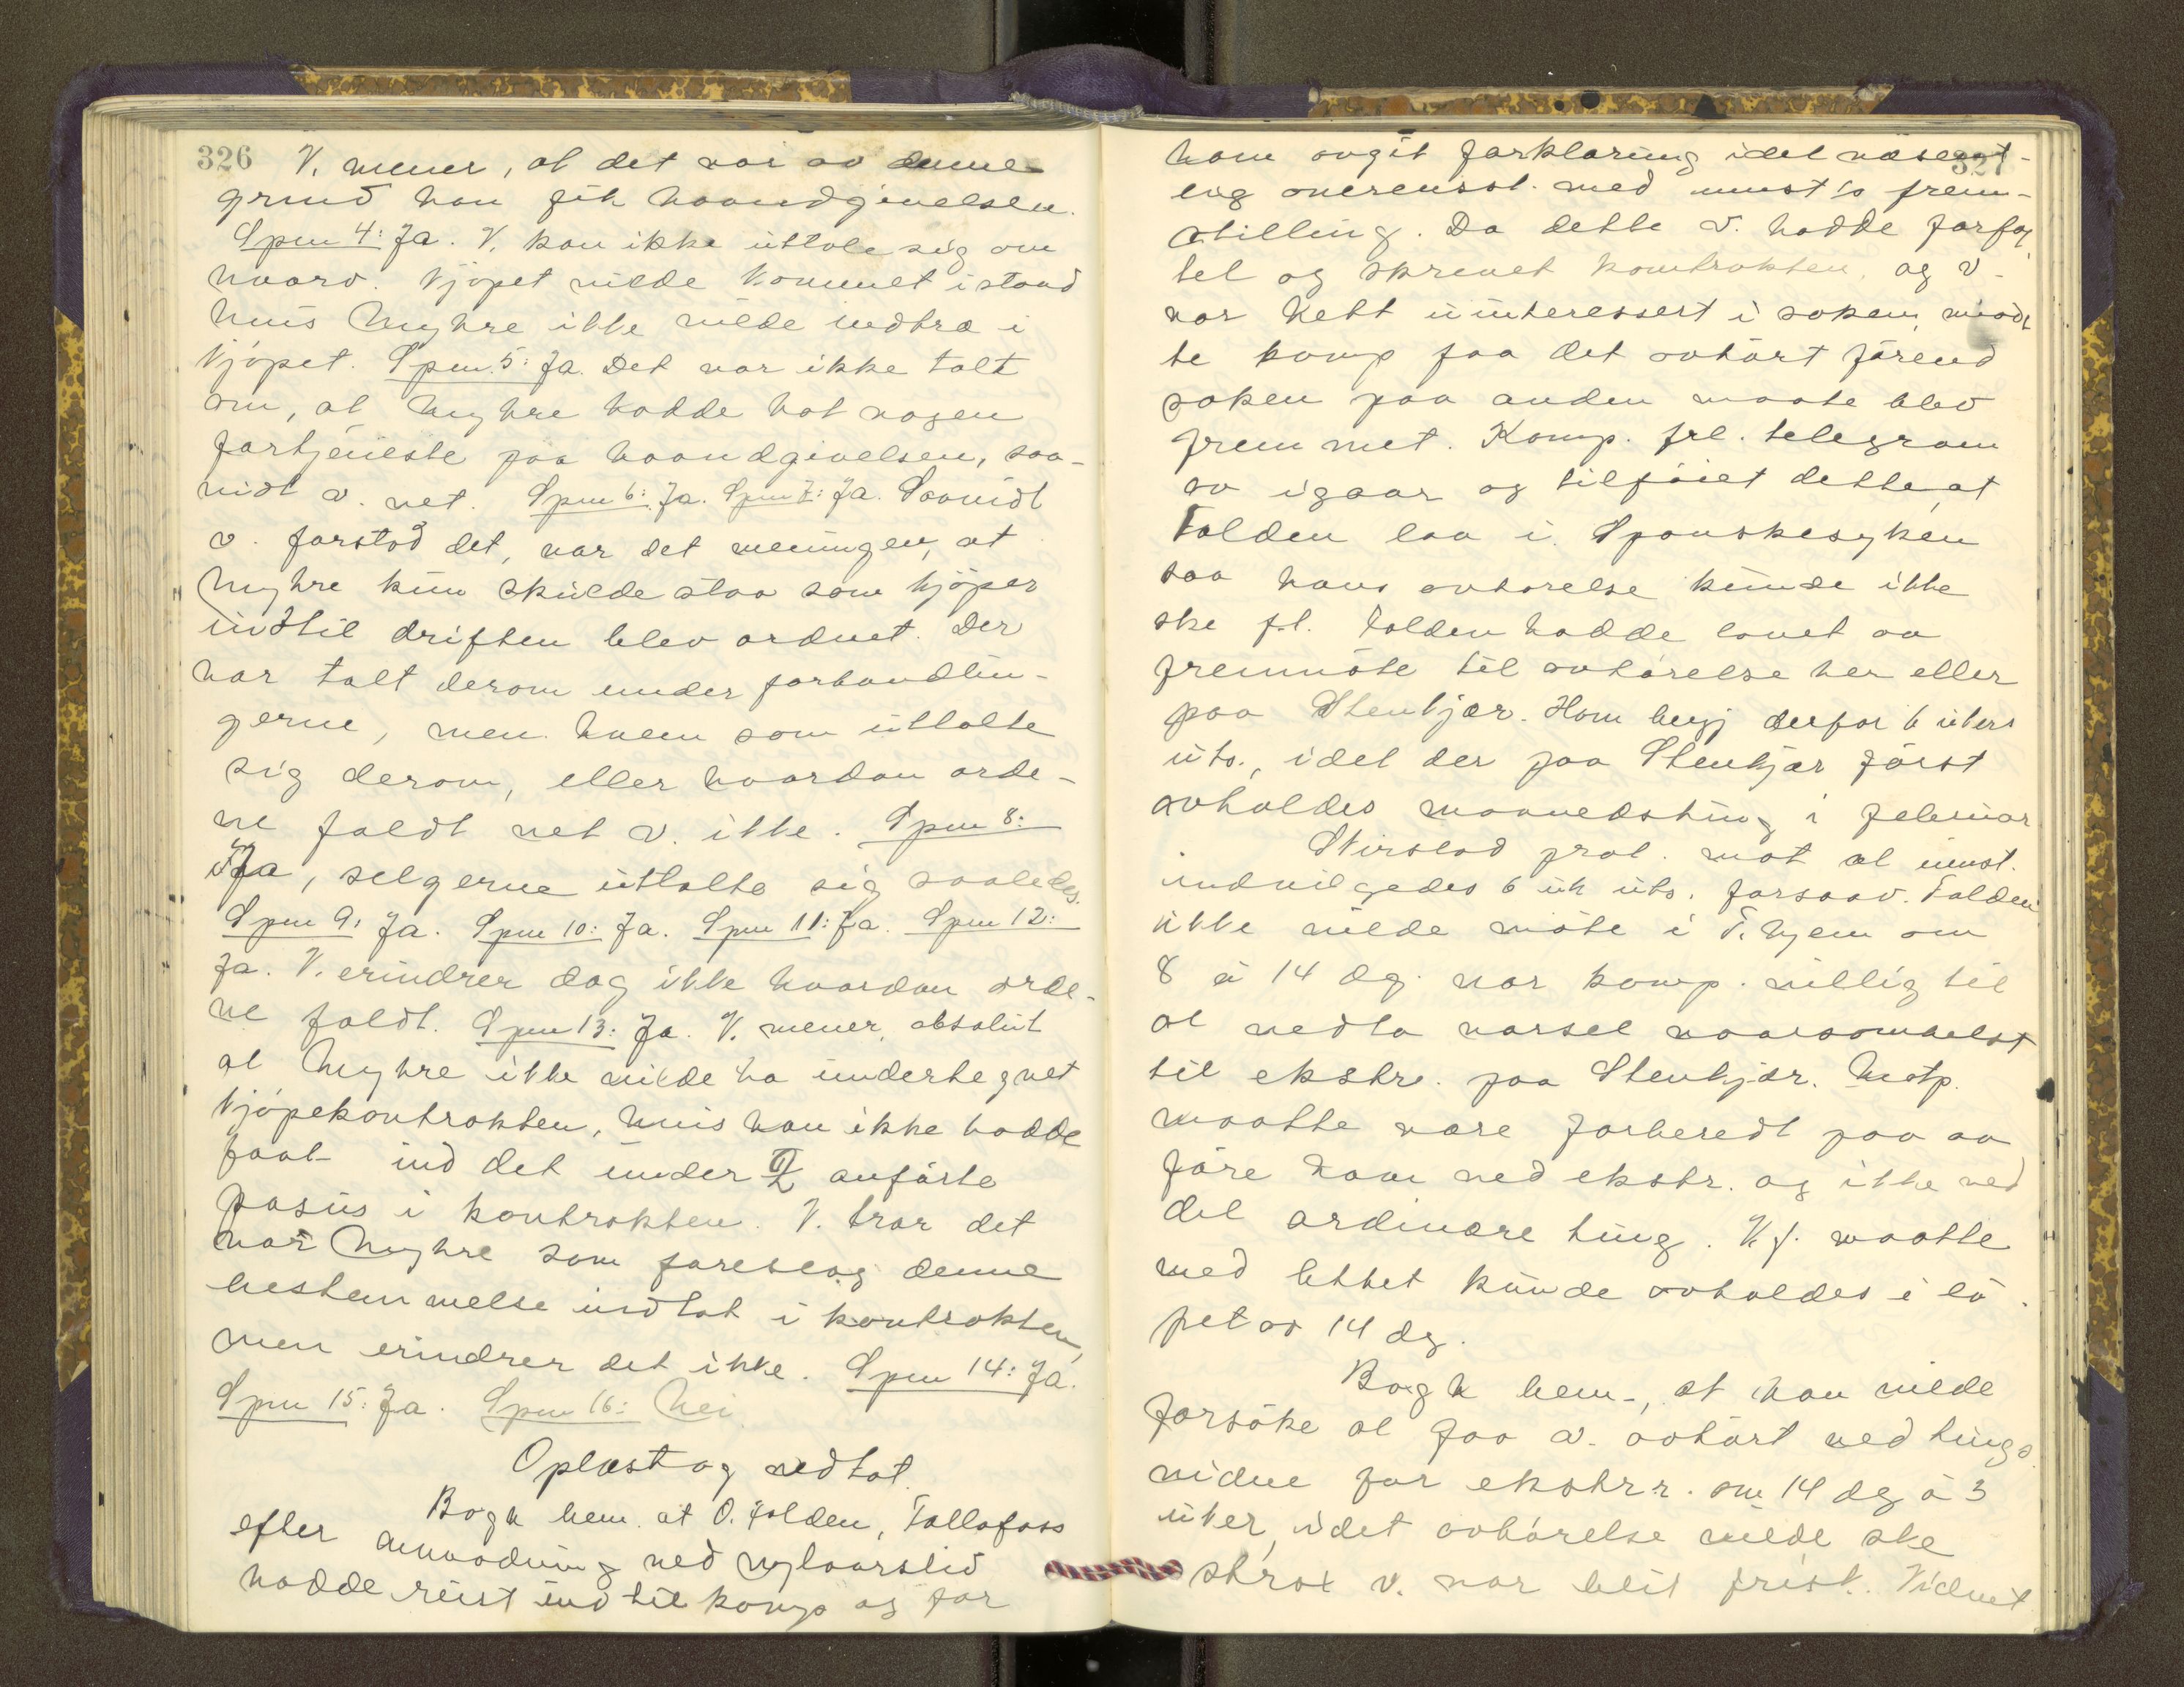 326
V. mener, at det var av denne
grund han fik haandgivelsen.
Spm 4: Ja. V. kan ikke uttale sig om
hvorv. kjøpet vilde kommet istand
hvis Myhre ikke vilde indtræ i
kjøpet. Spm. 5: Ja. Det var ikke talt
om, at Myhre hadde hat nogen
fortjeneste paa haandgivelsen, saa-
vidt v. vet. Spm 6: Ja. Spm 7: Ja. Saavidt
v. forstod det, var det meningen, at
Myhre kun skulde staa som kjøper
indtil driften blev ordnet. Der
var talt derom under forhandlin-
gerne, men hvem som uttalte
sig derom, eller hvordan orde-
ne faldt vet v. ikke. Spm 8:
Ja, selgerne uttalte sig saaledes.
Spm 9: Ja. Spm 10: Ja. Spm 11: Ja. Spm 12:
Ja. V. erindrer dog ikke hvordan orde-
ne faldt. Spm 13: Ja. V. mener absolut
at Myhre ikke vilde ha undertegnet
kjøpekontrakten, hvis han ikke hadde
faat ind det under II anførte
pasus i kontrakten. V. tror det
var Myhre som foreslog denne
bestemmelse indtat i kontrakten,
men erindrer det ikke. Spm 14: Ja.
Spm 15: Ja. Spm 16: Nei.
Oplæst og vedtat.
Bogh bem. at O. Folden, Fallofoss
efter anmodning ved nylaarstid
hadde reist ind til komp og for
327
ham avgit forklaring idet væsent-
lig overensst. med motst's frem-
stilling. Da dette v. hadde forfat-
tet og skrevet kontrakten, og v.
var helt uinteressert i saken, maat
te komp faa det avhørt førend
saken paa anden maate blev
fremmet. Komp. frl. telegram
av igaar og tilføiet dette, at
Folden laa i Spanskesyken
saa hans avhørelse kunde ikke
ske f.t. Folden hadde lovet aa
fremmøte til avhørelse her eller
paa Stenkjær. Han begj derfor 6 ukers
uts., idet der paa Stenkjær først
avholdes maanedsting i februar
prot. mot at
indvilgedes 6 uk uts. Forsaav. Folden
ikke vilde møte i T.hjem om
8 à 14 dg. var komp. villig til
at vedta varsel naarsomhelst
til ekstr. paa Stenkjær. Motp.
maatte være forberedt paa aa
føre ham ved ekstr. og ikke ved
det ordinære ting. V.f. maatte
med lethet kunde avholdes i lø-
pet av 14 dg.
Bogh bem., at han vilde
forsøke at faa v. avhørt ved tings
vidne for ekstr.r. om 14 dg à 3
uker, idet avhørelse vilde ske
strax v. var blit frisk. Vidnet